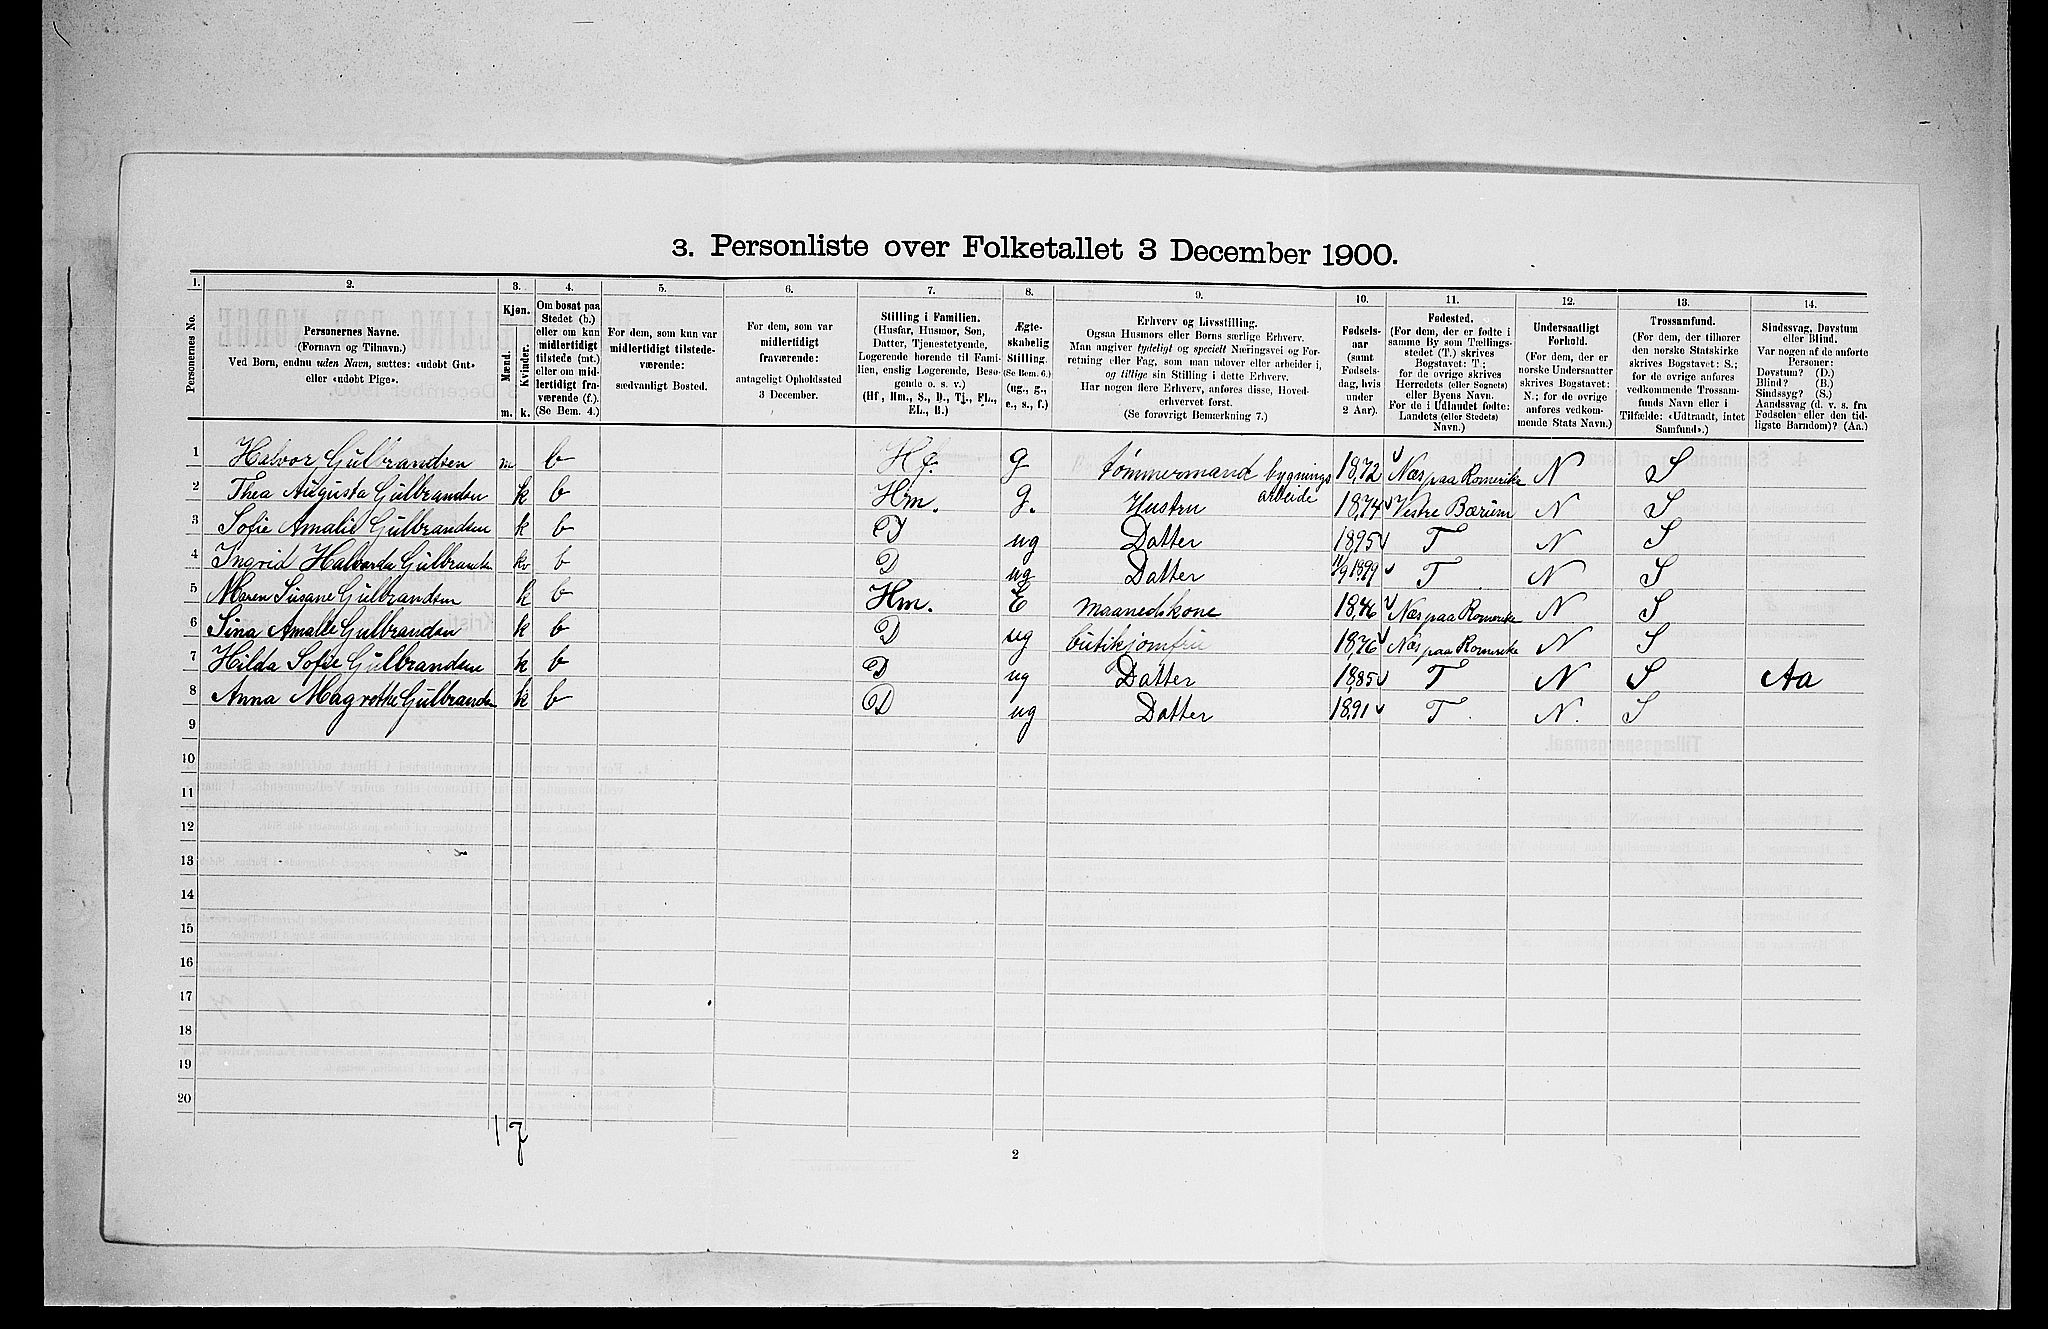 3. Personliste over Folketallet 3 December 1900.
1. 2. 3. 4. 5. 6. 7. 8. 9. 10. 11. 12. 13. 14.
Personernes No.
Personernes Navne.
(Fornavn og Tilnavn.)
Ved Børn, endnu uden Navn, sættes: «udøbt Gut»
eller «udøbt Pige».
Kjøn.
Mænd.
Kvinder.
m. k.
Om bosat paa
Stedet (b.)
eller om kun
midlertidigt
tilstede (mt.)
eller om mid-
lertidigt fra-
værende (f.).
(Se Bem. 4.)
For dem, som kun var
midlertidigt tilstede-
værende:
sædvanligt Bosted.
For dem, som var
midlertidigt
fraværende:
antageligt Opholdssted
3 December.
Stilling i Familien.
(Husfar, Husmor, Søn,
Datter, Tjenestetyende,
Logerende hørende til Fami-
lien, enslig Logerende, Besø-
gende o. s. v.)
(Hf., Hm., S., D., Tj., FL.,
EL., B.)
Ægte-
skabelig
Stilling.
(Se Bem. 6.)
(ug., g.,
e., s., f.)
Erhverv og Livsstilling.
Ogsaa Husmors eller Børns særlige Erhverv.
Man angiver tydeligt og specielt Næringsvei og For-
retning eller Fag, som man udøver eller arbeider i,
og tillige sin Stilling i dette Erhverv.
Har nogen flere Erhverv, anføres disse, Hoved-
erhvervet først.
(Se forøvrigt Bemerkning 7.)
Fødsels-
aar
(samt
Fødsels-
dag, hvis
under
2 Aar).
Fødested.
(For dem, der er fødte i
samme By som Tællings-
stedet (T.) skrives
Bogstavet: T.;
for de øvrige skrives
Herredets (eller Sognets)
eller Byens Navn.
For de i Udlandet fødte:
Landets (eller Stedets)
Navn.)
Undersaatligt
Forhold.
(For dem, der er
norske Undersaatter
skrives Bogstavet:
N.; for de øvrige
anføres vedkom-
mende Stats Navn.)
Trossamfund.
(For dem, der tilhører
den norske Statskirke
skrives Bogstavet: S.;
for de øvrige anføres
vedkommende Trossam-
funds Navn eller i
Tilfælde: «Udtraadt, intet
Samfund».)
Sindssvag, Døvstum
eller Blind.
Var nogen af de anførte
Personer:
Døvstum? (D.)
Blind? (B.)
Sindssyg? (S.)
Aandssvag (d. v. s. fra
Fødselen eller den tid-
ligste Barndom)? (Aa.)
1 Halvor Gulbrandsen m b Hf. g tømmermand bygnings arbeide 1872 Næs paa Romerike N S
2 Thea Augusta Gulbrandsen k b Hm. g. Hustru 1874 Vestre Bærum N S
3 Sofie Amalie Gulbrandsen k b D ug Datter 1895 T N S
4 Ingrid Halvarda Gulbrandsen kv b D ug Datter 11/9 1899 T N S
5 Maren Susane Gulbrandsen k b Hm. E maanedskone 1846 Næs paa Romerike N S
6 Sina Amalie Gulbrandsen k b D ug butikjomfru 1876 Næs paa Romerike N S
7 Hilda Sofie Gulbrandsen k b D ug Datter 1885 T N S Aa
8 Anna Magrethe Gulbrandsen k b D ug Datter 1891 T N. S
9
10
11
12
13
14
15
16
17
18
19
20
1 7
2